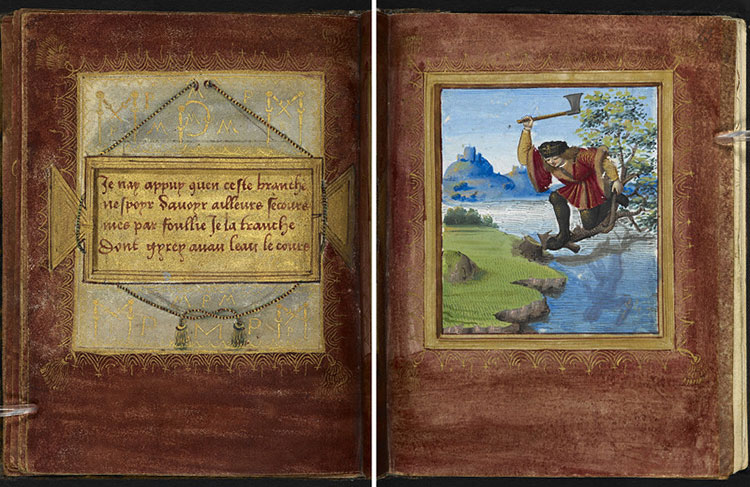 Je nay appuy quen ceste branche
nespoyr davoyr ailleurs secours
mes par foullie Je la tranche
Dont gyrey avau leau le cours